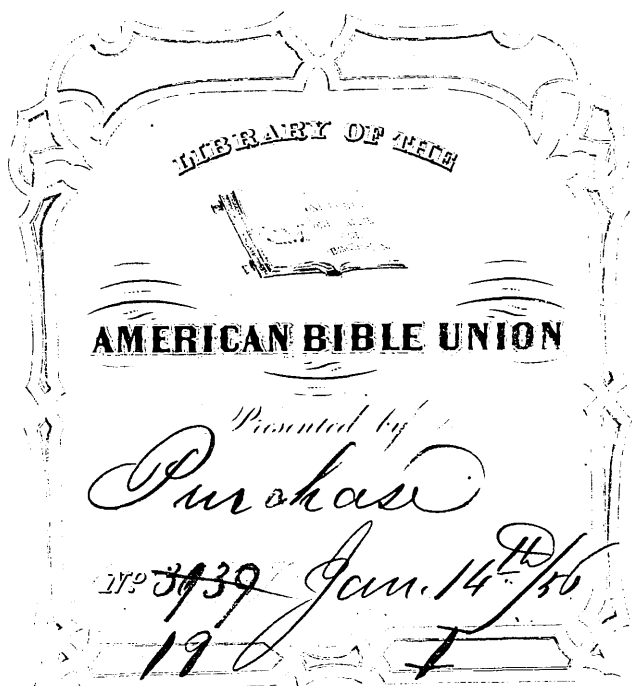 LIBRARY OF THE
AMERICAN BIBLE UNION
Presented by
Purchase
No 3939 Jan. 14th/56
19 I